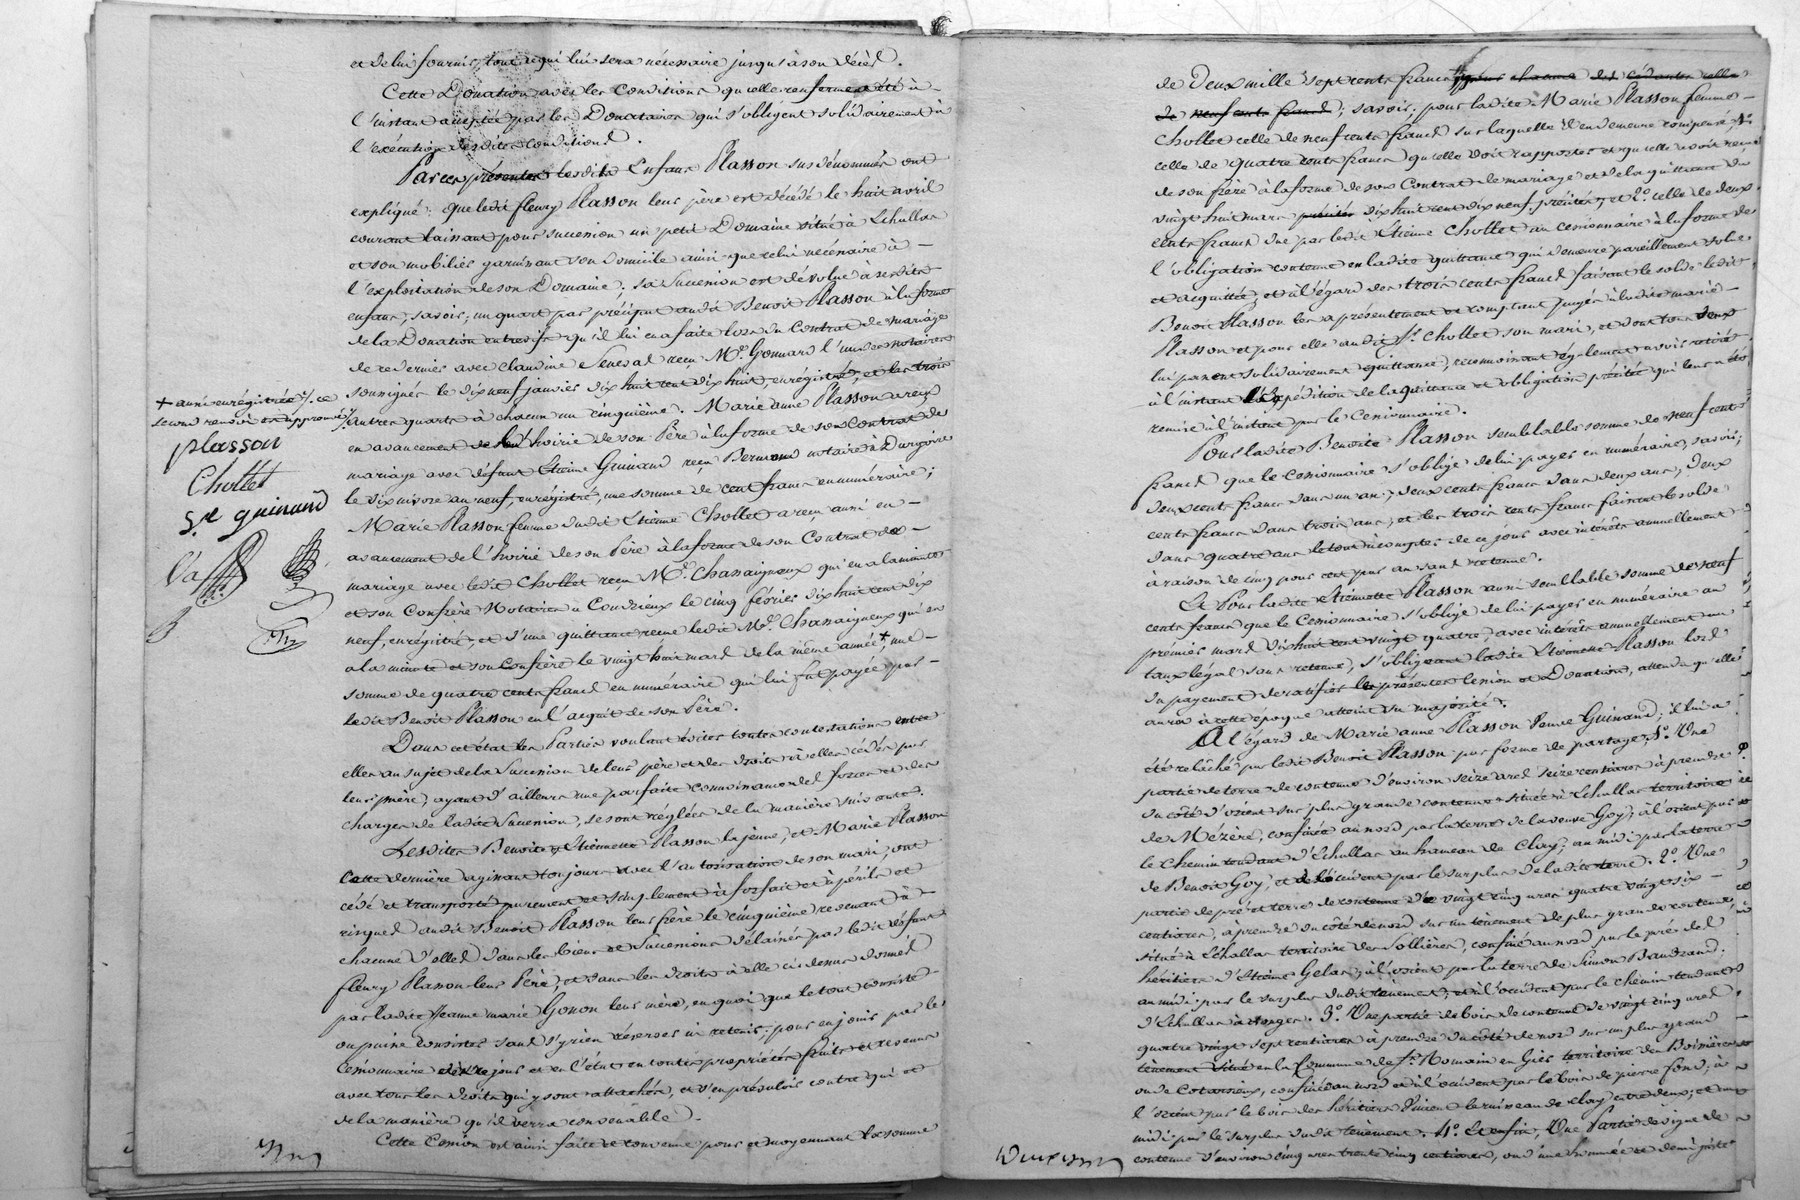 et de lui fournir tout ce qui lui sera nécessaire jusqu'à son décès.
Cette Donation avec les conditions qu'elle renferme a été à
l'instant acceptée par les Donataires qui s'obligent solidairement à
l'exécution desdites conditions.
Par ces présentes lesdits Enfans Plasson susdénommés ont
expliqué: que ledit fleury Plasson leur père est décédé le huit avril
courant laissant pour succession un petit Domaine situé à Echullas
et son mobilier garnissant son domicile ainsi que celui nécessaire à
l'exploitation de son Domaine. Sa succession est dévolue à sesdits
enfans, savoir; un quart par préciput audit Benoit Plasson à la forme
de la Donation entrevifs qu'il lui en a faite lors du Contrat de mariage
de ce dernier avec Claudine Seneval reçu Me. Gonnard l'un des notaires
soussignés le dix neuf janvier dix huit cent dix huit, enrégistré, et les trois
autres quarts à chacun un cinquième. Marie anne Plasson a reçu
en avancement de hoirie de son Père à la forme de son Contrat de
mariage avec défunt Etienne Guinand reçu notaire à Dargoire
le dix nivose an neuf, enrégistré, une somme de cent francs en numéraire;
Marie Plasson femme dudit Etienne Chollet a reçu aussi en
avancement de l'hoirie de son Père à la forme de son Contrat de
mariage avec ledit Chollet reçu Me. Chanaigneux qui en a la minute
et son Confrère Notaires à Condrieux le cinq février dix huit cent dix
neuf, enrégistré, et d'une quittance reçue ledit Me. Chanaigneux qui en
a la minute et son Confrère le vingt huit mars de la même année + une
somme de quatre cents francs en numéraire qui lui fut payée par
ledit Benoit Plasson en l'acquit de son Père.
Dans cet état les Parties voulant éviter toutes contestations entre
elles au sujet de la Succession de leur père et des droits à elles cédés par
leur mère, ayant d'ailleurs une parfaite connoissance des forces et des
charges de ladite Succession, se sont réglées de la manière suivante.
Lesdites Benoite, Etiennette Plasson la jeune, et Marie Plasson
cette dernière agissant toujours avec l'autorisation de son mari, ont
cédé et transporté purement et simplement à forfait et à périls et
risques audit Benoit Plasson leur frère le cinquième revenant à
chacune d'elles dans les biens et Successions délaissés par ledit défunt
fleury Plasson leur Père, et dans les droits à elle ci dessus donnés
par ladite Jeanne marie Gonon leur mère, en quoi que le tout consiste
ou puisse consister sans s'y rien réserver ni retenir, pour en jouir par le
Cessionnaire dès ce jour et en l'état en toute propriété, fruits et revenus
avec tous les droits qui y sont attachés, et s'en prévaloir contre qui et
de la manière qu'il verra convenable.
Cette Cession est ainsi faite et convenue pour et moyennant la somme
+ aussi enrégistrée ./. ce
second renvoi est approuvé ./.
plasson
Chollet
Ge guinand
de Deux mille sept cents francs pour chacune des cédantes celle
de neuf cents francs; savoir; pour ladite Marie Plasson femme
Chollet celle de neuf cents francs sur laquelle il en demeure compensé, 1o.
celle de quatre cents francs qu'elle doit rapporter et qu'elle avoit reçu
de son frère à la forme de son Contrat de mariage et de la quittance du
vingt huit mars dix huit cent dix neuf, précités; et 2o. celle de deux
cents francs due par ledit Etienne Chollet au cessionnaire à la forme de
l'obligation contenue en ladite quittance qui demeure pareillement solue
et acquittée, et à l'égard des trois cents francs faisant le solde ledit
Benoit Plasson les a présentement et comptant payés à ladite marie
Plasson et pour elle audit Sr. Chollet son mari, et dont tous deux
lui passent solidairement quittance; reconnoissant également avoir retiré
à l'instant l'expédition de la quittance et obligation précitée qui leur a été
remise à l'instant par le Cessionnaire.
Pour ladite Benoite Plasson semblable somme de neuf cents
francs que le Cessionnaire s'oblige de lui payer en numéraire, savoir;
deux cents francs dans un an, deux cents francs dans deux ans, deux
cents francs dans trois ans, et les trois cents francs faisant le solde
dans quatre ans le tout à compter de ce jour avec intérêts annuellement
à raison de cinq pour cent par an sans retenue.
Et Pour ladite Etiennette Plasson aussi semblable somme de neuf
cents francs que le Cessionnaire s'oblige de lui payer en numéraire au
premier mars dix huit cent vingt quatre, avec intérêts annuellement au
taux légal sans retenue, s'obligeant ladite Etiennette Plasson lors
du payement de ratifier les présentes Cession et Donation, attendu qu'elle
aura à cette époque atteint sa majorité.
A l'égard de Marie anne Plasson Veuve Guinand; il lui a
été relâché par ledit Benoit Plasson par forme de partage, 1o. Une
partie de terre de contenue d'environ seize ares seize centiares à prendre
du côté d'orient sur plus grande contenue située à Echullas territoire
de Mézère, confinée au nord par la terre de la veuve Goy; à l'orient par
le chemin tendant d'Echullas au hameau de Clay; au midi par la terre
de Benoit Goy, et à l'occident par le surplus de ladite terre. 2o. Une
partie de pré et terre de contenue de vingt cinq ares quatre vingt six
centiares, à prendre du côté de nord sur un tènement de plus grande contenue,
situé à Echullas territoire des Sollières, confiné au nord par le pré des
héritiers d'Etienne Gelas; à l'orient par la terre de Simon Baudrand;
au midi par le surplus dudit tènement, et à l'occident par le chemin tendant
d'Echullas à . 3o. Une partie de bois de contenue de vingt cinq ares
quatre vingt sept centiares à prendre du côté de nord sur un plus grand
tènement situé en la Commune de St. Romain en Gier territoire des
ou de , confinée au nord et à l'occident par le bois de pierre fond; à
l'orient par le bois des héritiers le ruisseau de clay entre deux; et au
midi par le surplus dudit tènement. 4o. Et enfin, Une Partie de vigne de
contenue d'environ cinq ares trente cinq centiares, ou d'une hommée et demie